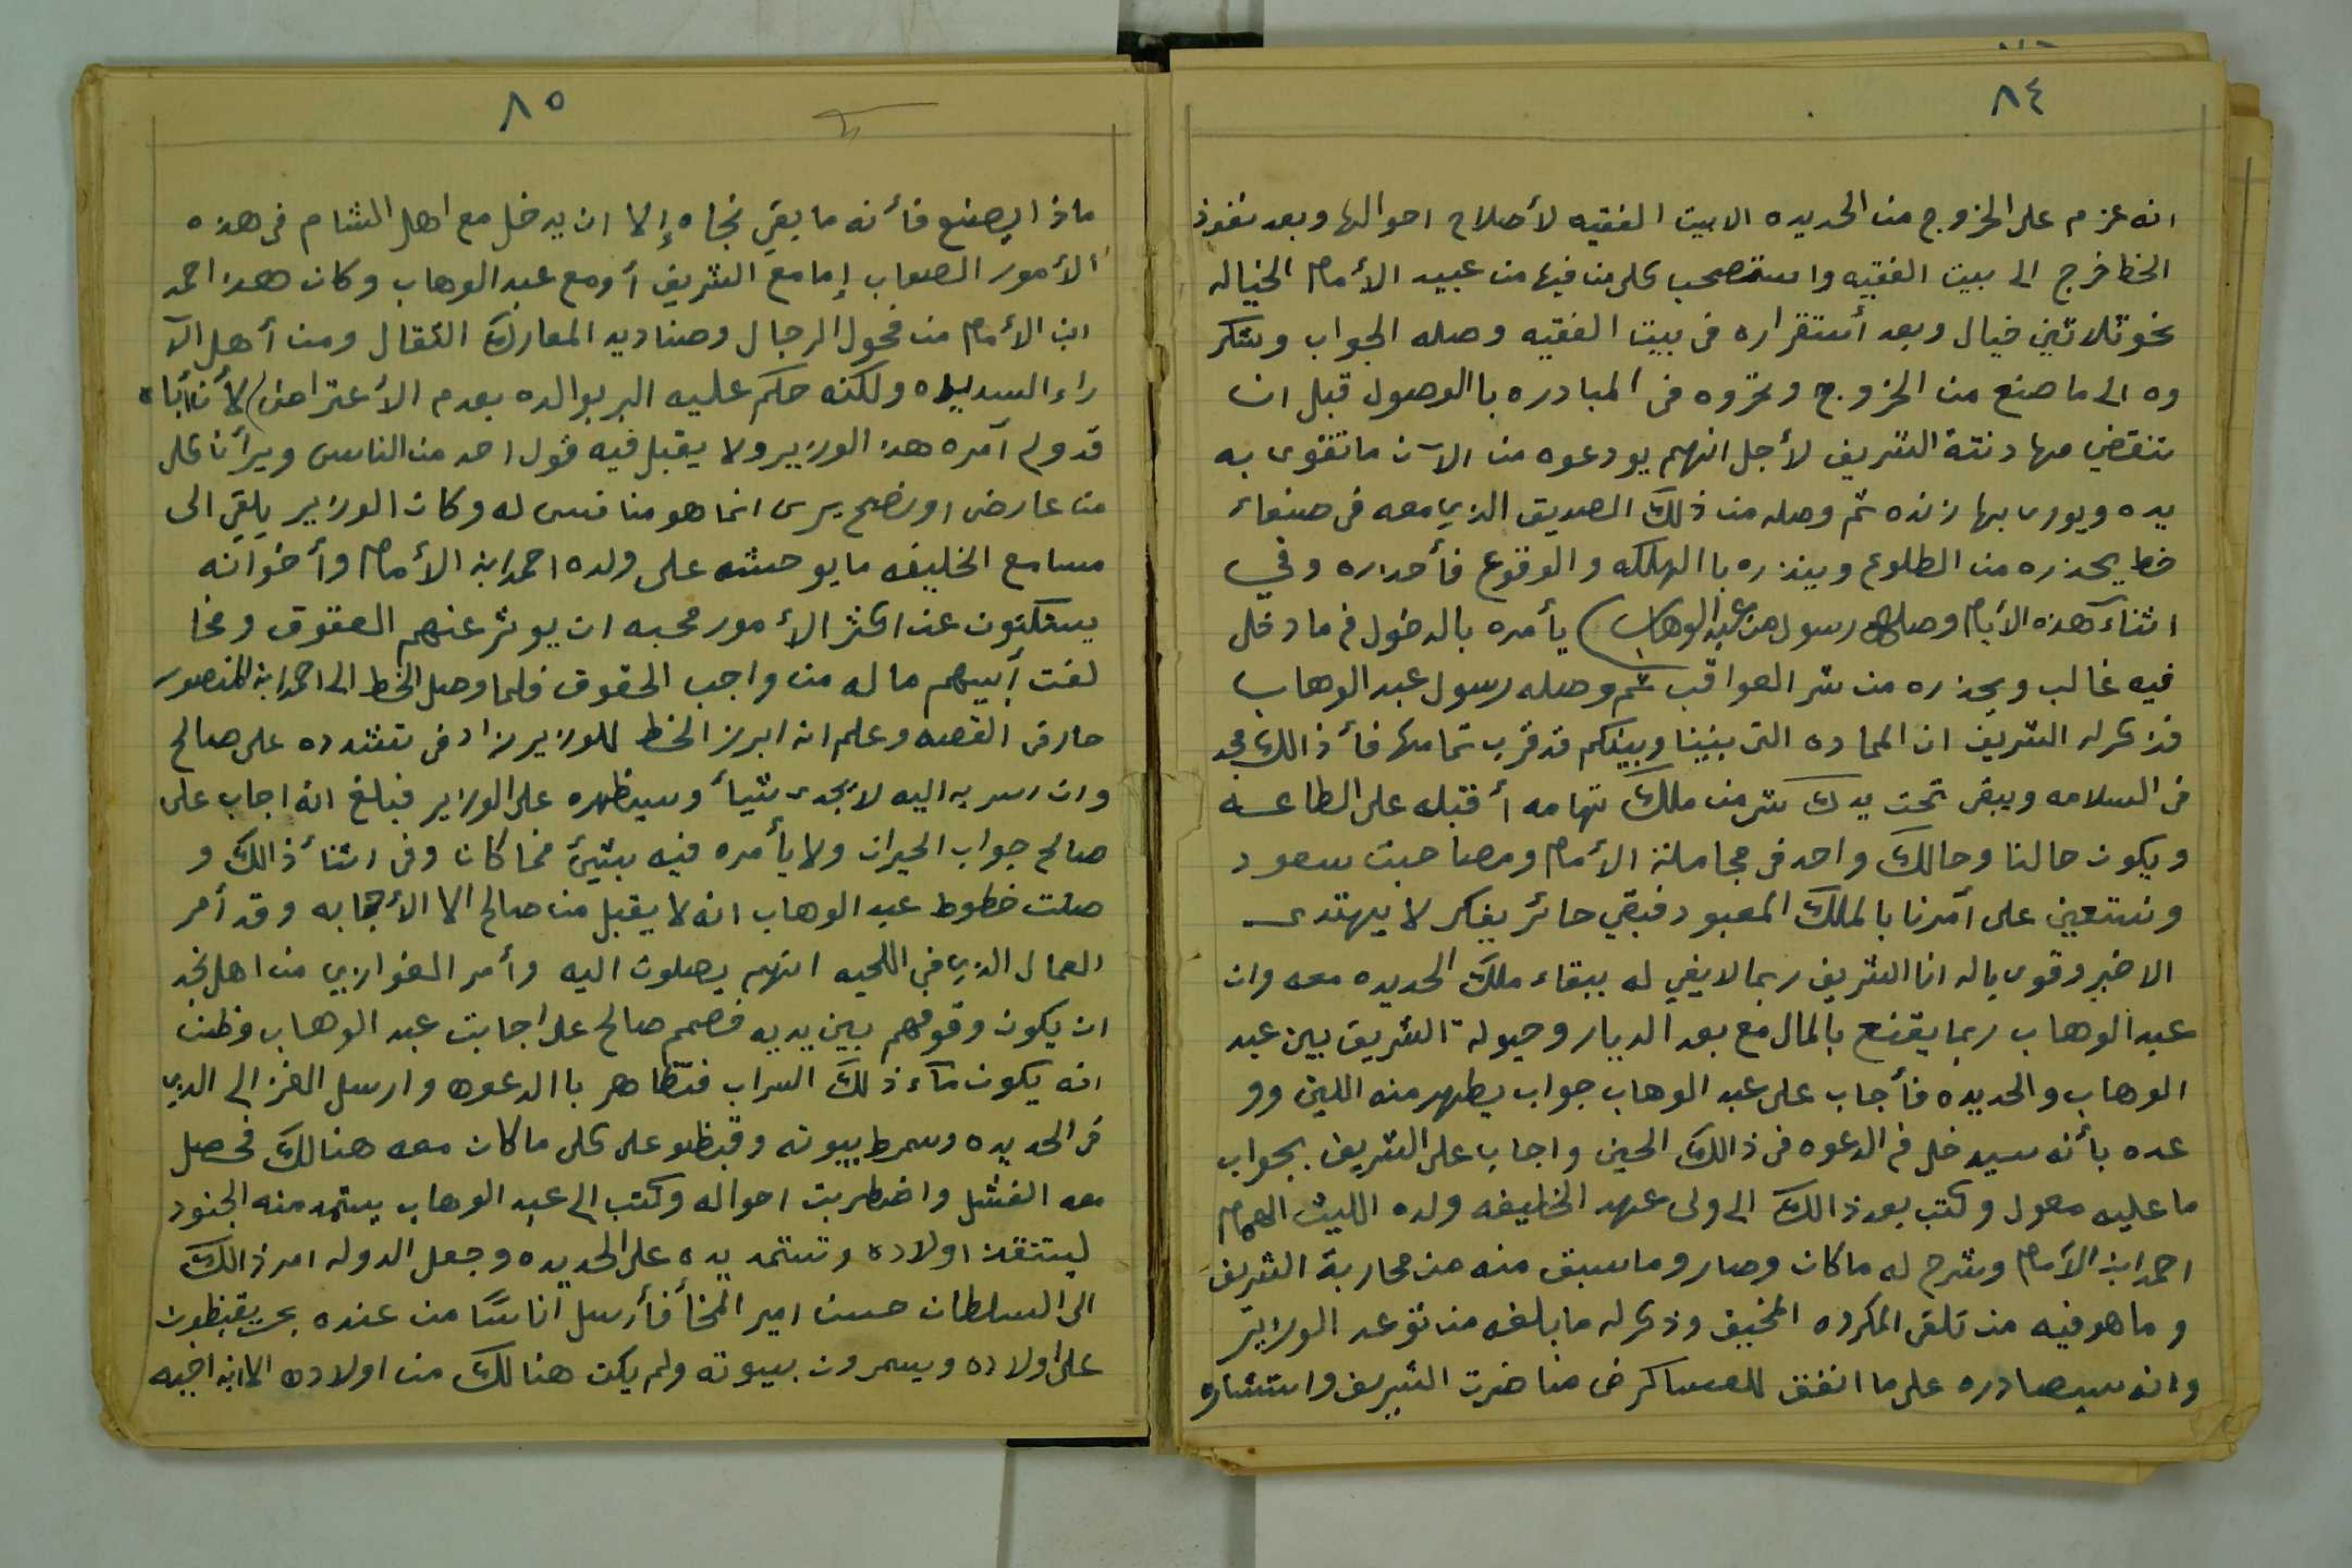 ٨٤
انه عزم على الخروج من الحديده الا بيت الفقيه لأصلاح احوالها وبعد نفوذ
الخط خرج الى بيت الفقيه واستصحب كلمن فيها من عبيد الأمام الخياله
نحو ثلاثين خيال وبعد أستقراره في بيت الفقيه وصله الجواب وشكر
وه الى ما صنع من الخروج وتحروه في المبادره با الوصول قبل ان
تنقضي مهادنتة الشريف لأجل انهم يودعوه من الآن ما تقوى به
يده ويورى بها زنده ثم وصله من ذلك الصديق الذي معه في صنعاء
خط يحذره من الطلوع وينذره با الهلكه والوقوع فأحداره وفي
اثناء هذه الأيام وصله رسول من عبد الوهاب يأمره بالدخول فما دخل
فيه غالب ويحذره من شر العواقب ثم وصله رسول عبد الوهاب
فذكر له الشريف ان المحاده التي بيننا وبينكم قد قرب تمامها فأذالك مجد
في السلامه ويبقى تحت يدك شر من ملك تهامه أقتبله على الطاعه
ويكون حالنا وحالك واحد في مجاملة الأمام ومصاحبت سعود
ونستعين على أمرنا بالملك المعبود فبقي حائر يفكر لا يهتدى
الا خير وقوى باله انا الشريف ربما لا يفي له ببقاء ملك الحديده معه وان
عبد الوهاب ربما يقنع بالمال مع بعد الديار وحيولة الشريف بين عبد
الوهاب والحديده فأجاب على عبد الوهاب جواب يظهر منه اللين وو
عده بأنه سيدخل في الدعوه في ذالك الحين واجاب على الشريف بجواب
ما عليه معول وكتب بعد ذالك الى ولى عهد الخليفه ولده الليث الهمام
احمد ابن الأمام وشرح له ما كان وصار وما سبق منه من محاربة الشريف
وما هو فيه من تلقى المكروه المخيف وذكر له ما بلغه من توعد الوزير
وانه سيصادره على ما انفق للعساكر في مناضرت الشريف واستشاره
٨٥
ماذا يصنع فأنه ما بقي نجاه إلا ان يدخل مع اهل الشام في هذه
الأمور الصعاب إما مع الشريف أو مع عبد الوهاب وكان هذا احمد
ابن الأمام من فحول الرجال وصناديد المعارك الثقال ومن أهل الآ
راء السديده ولكنه حكم عليه البر بوالده بعدم الأعتراض لأن أباه
قد ولى أمره هذا الوزير ولا يقبل فيه قول احد من الناس ويرأن كل
من عارض او نصح يرى انما هو منافس له وكان الوزير يلقي الى
مسامع الخليفه ما يوحشه على ولده احمد ابن الأمام وأخوانه
يستكتون عن اكثر الأمور محبه ان يوثر عنهم العقوق ومخا
لفت أبيهم ما له من واجب الحقوق فلما وصل الخط الى احمد ابن المنصور
حار في القصه وعلم انه ابرز الخط للوزير زاد في تشدده على صالح
وان اسر به اليه لا يجدى شيأ وسيظهره على الوزير فبلغ انه اجاب على
صالح جواب الحيران ولا يأمره فيه بشيئ فما كان وفي اثنأ ذالك و
صلت خطوط عبد الوهاب انه لا يقبل من صالح الا الأجابه وقد أمر
العمال الذي في اللحيه انهم يصلون اليه وأمر الغوازي من اهل نجد
ان يكون وقوفهم بين يديه فصمم صالح على اجابت عبد الوهاب وظن
انه يكون مآء ذلك السراب فتظاهر با الدعوه وارسل الغز الى الذي
في الحديده وسمرط بيوته وقبظو على كل ما كان معه هنالك فحصل
معه الفشل واضطربت احواله وكتب الى عبد الوهاب يستمد منه الجنود
ليتنقذ اولاده وتستمد يده على الحديده وجعل الدوله امر ذالك
الى السلطان حسن امير المخأ فأرسل اناسًا من عنده بحر يقبظون
على اولاده ويسمرون بيوته ولم يكن هنالك من اولاده الا ابن اخيه